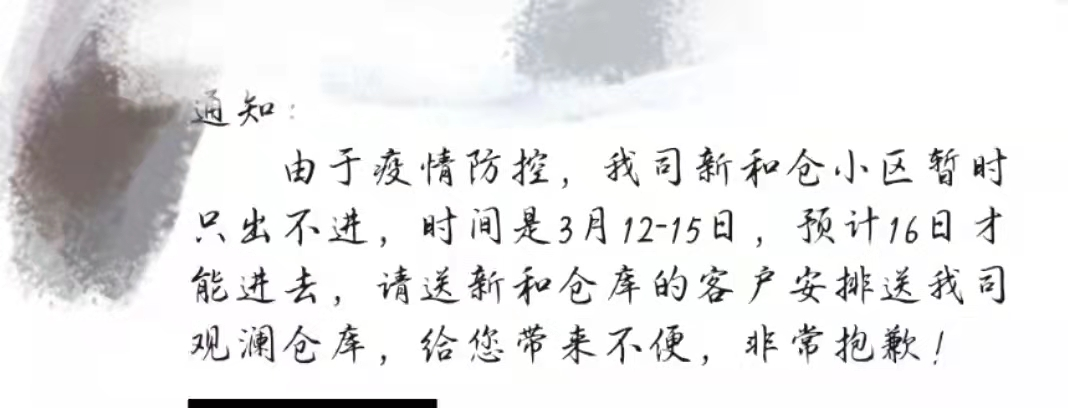 通知：
由于疫情防控，我司新和仓小区暂时
只出不进，时间是3月12-15日，预计16日才
能进去，请送新和仓库的客户安排送我司
观澜仓库，给您带来不便，非常抱歉！